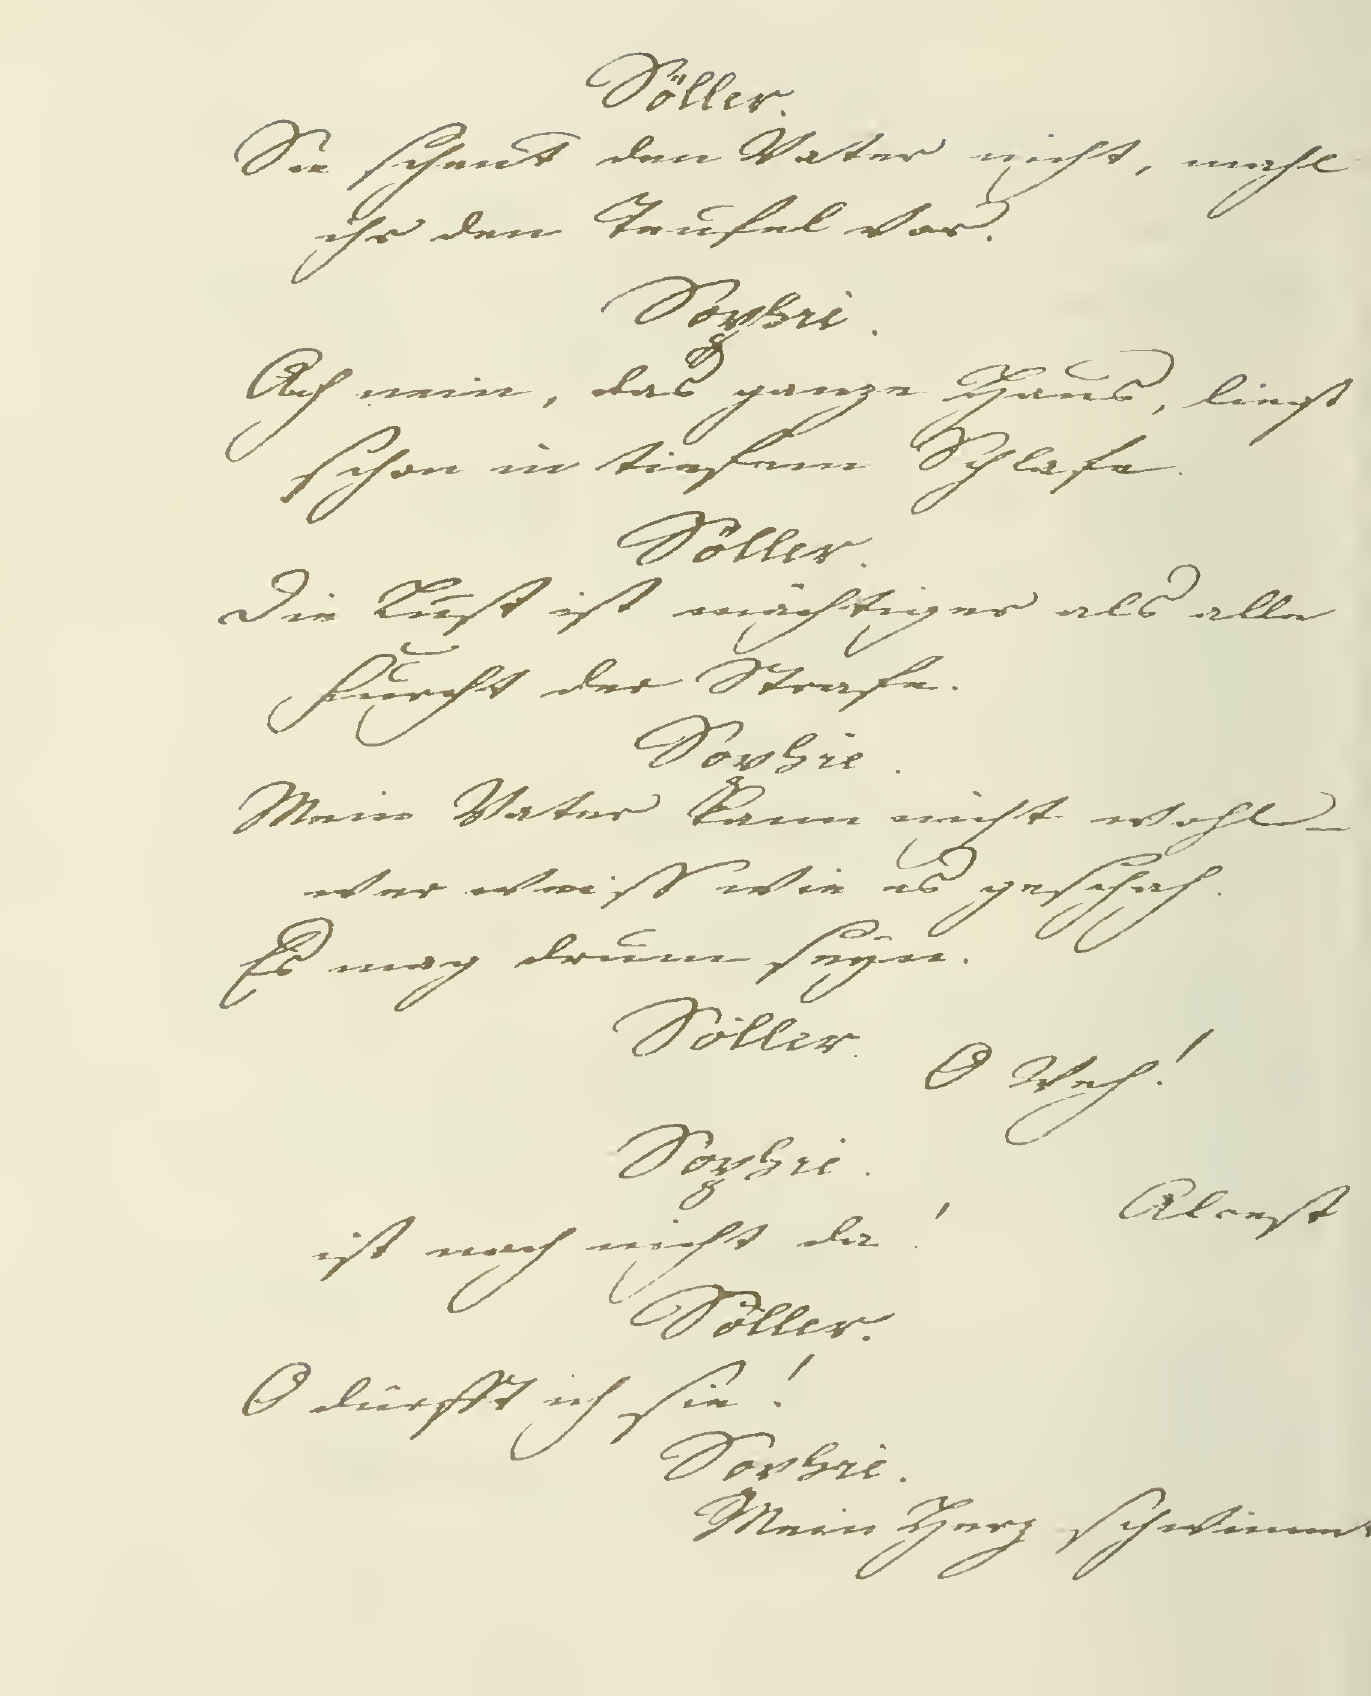 Söller.
Sie scheut den Vater nicht, mahl
ihr den Teufel vor.
Sophie.
Ach nein, das ganze Haus, liegt
schon in tiefem Schlafe.
Söller.
Die Lust ist mächtiger als alle
Furcht der Strafe.
Sophie.
Mein Vater kann nicht wohl –
wer weiss wie es geschah.
Es mag drum seyn.
Söller.
O Weh!
Sophie.
Alcest
ist noch nicht da!
Söller.
O dürfft ich sie!
Sophie.
Mein Herz schwimmt